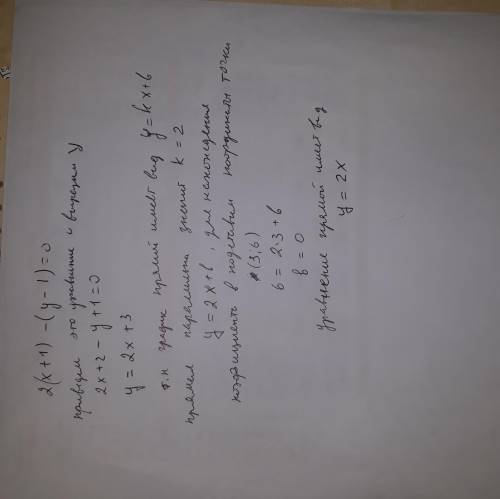 2(x+1) - (y-1)=0
приведем это уравнение и выразим y
2x+2-y+1=0
y = 2x+3
т.к график прямий имеет вид y=kx+b
прямая параллельна значит k=2
y=2x+b, для нахождения
коэфициента b подставим координаты точки
(3;6)
6 = 2·3+b
b = 0
уравнение прямой имеет вид
y = 2x